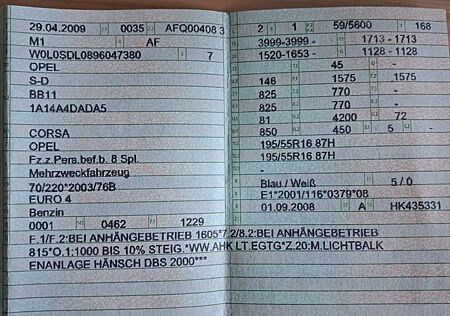 29.04.2009 0035 AFQ00408 3
M1 AF
W0L0SDL0896047380 7
OPEL
S-D
BB11
1A14A4DADA5
CORSA
OPEL
Fz.z.Pers.bef.b. 8 Spl.
Mehrzweckfahrzeug
70/220*2003/76B
EURO 4
Benzin
0001 0462 1229
2 1 59/5600 168
3999-3999 - 1713 - 1713
1520-1653 - 1128 - 1128
- 45 -
146 1575 1575
825 770 -
825 770 -
81 4200 72
850 450 5 -
195/55R16 87H
195/55R16 87H
-
Blau / Weiß 5 / 0
E1*2001/116*0379*08
01.09.2008 A HK435331
F.1/F.2:BEI ANHÄNGEBETRIEB 1605*7.2/8.2:BEI ANHÄNGEBETRIEB
815*O.1:1000 BIS 10% STEIG.*WW.AHK LT.EGTG*Z.20:M.LICHTBALK
ENANLAGE HÄNSCH DBS 2000***